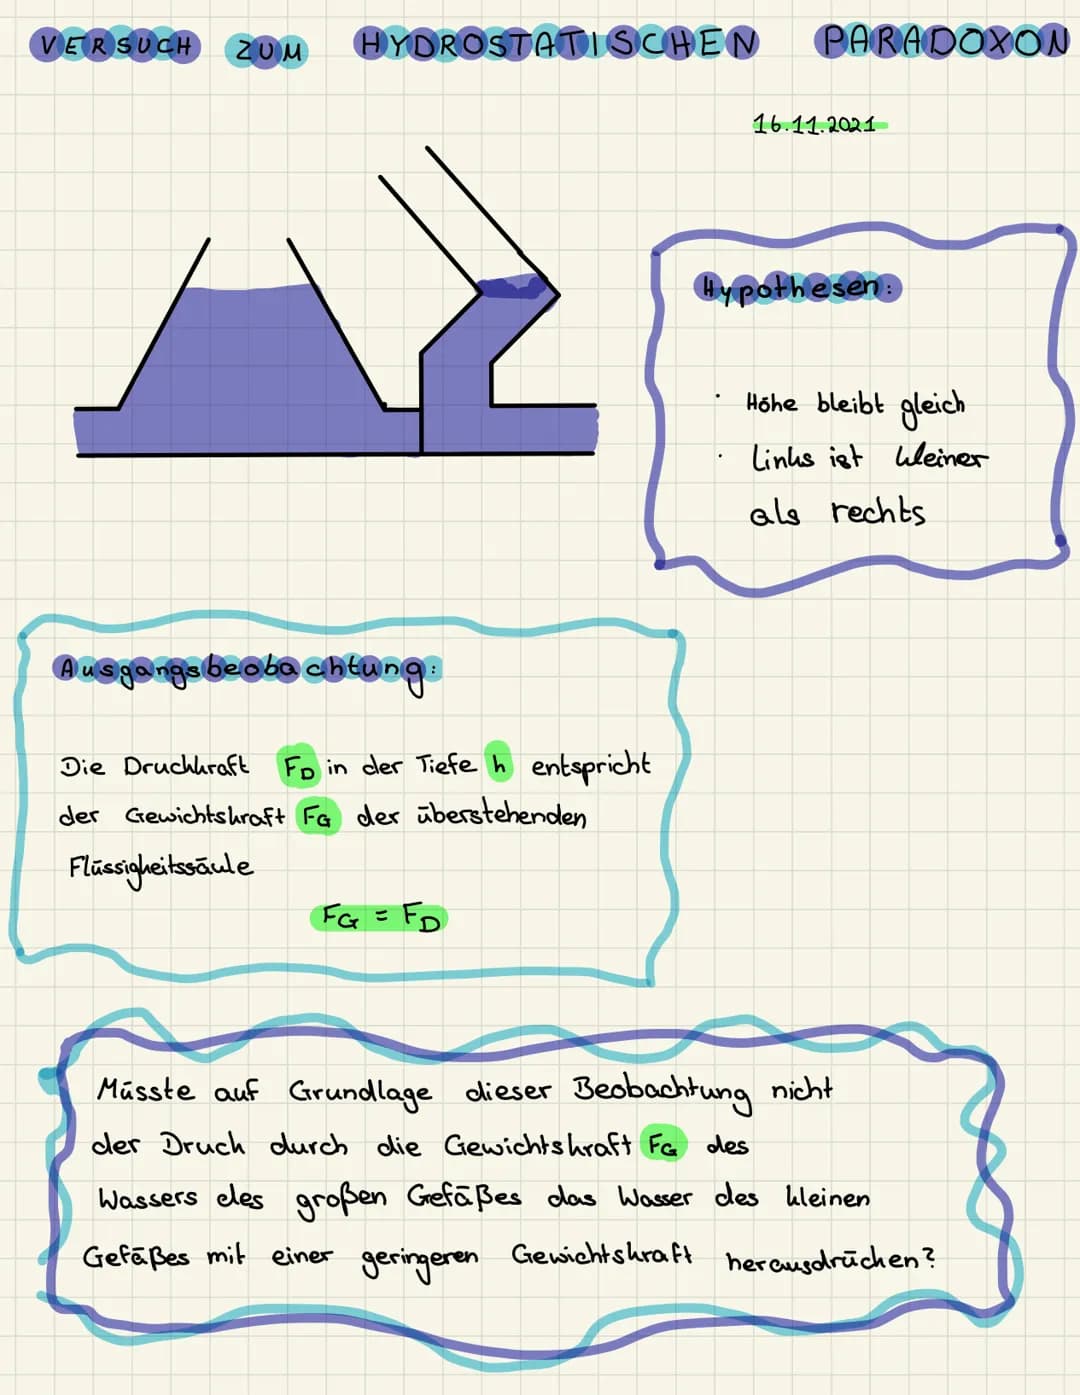 VERSUCH ZUM HYDROSTATISCHEN PARADOXON
16.11.2021
Hypothesen:
· Höhe bleibt gleich
· Links ist kleiner
als rechts
Ausgangsbeobachtung:
Die Druckkraft FD in der Tiefe h entspricht
der Gewichtskraft FG der überstehenden
Flüssigkeitssäule
FG = FD
Müsste auf Grundlage dieser Beobachtung nicht
der Druck durch die Gewichtskraft FG des
Wassers des großen Gefäßes das Wasser des kleinen
Gefäßes mit einer geringeren Gewichtskraft herausdrücken?